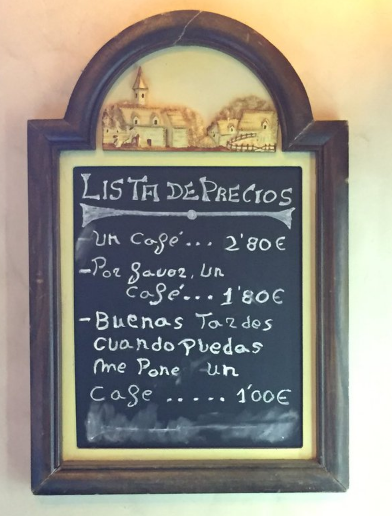 LISTA DE PRECIOS
un café... 2'80€
-Por favor, un
café... 1'80€
-Buenas Tardes
cuando puedas
me Pone un
cafe ..... 1'00€